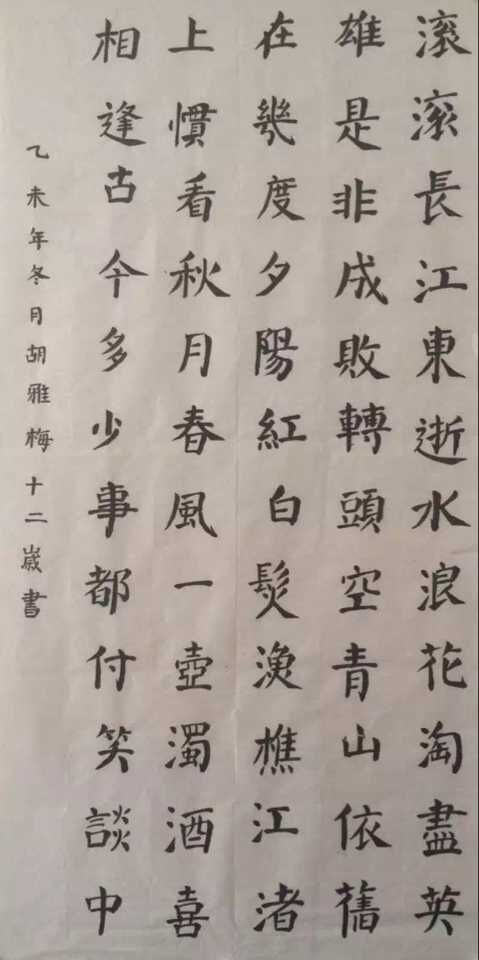 滚滚長江東逝水浪花淘盡英
雄是非成敗轉頭空青山依舊
在幾度夕陽紅白髮漁樵江渚
上慣看秋月春風一壺濁酒喜
相逢古今多少事都付笑談中
乙未年冬月胡雅梅十二歲書